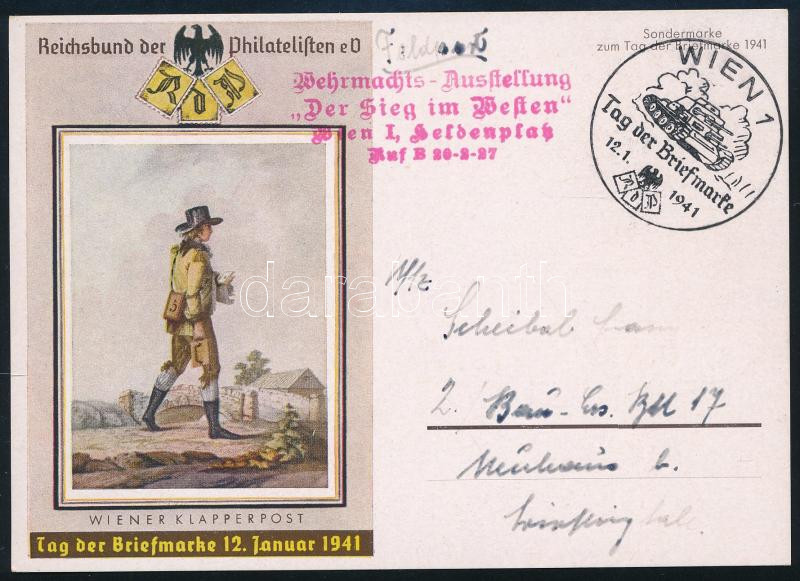 Reichsbund der Philatelisten eV
R d P
Feldpost
Sondermarke
zum Tag der Briefmarke 1941
Wehrmachts-Ausstellung
„Der Sieg im Westen“
Wien I, Heldenplatz
Ruf B 20-2-27
WIEN 1
Tag der Briefmarke
12.1. 1941
R d P
3
darabanth
Scheibal
2. Bau-Ers. Btl 17
Neuhaus b.
WIENER KLAPPERPOST
Tag der Briefmarke 12. Januar 1941